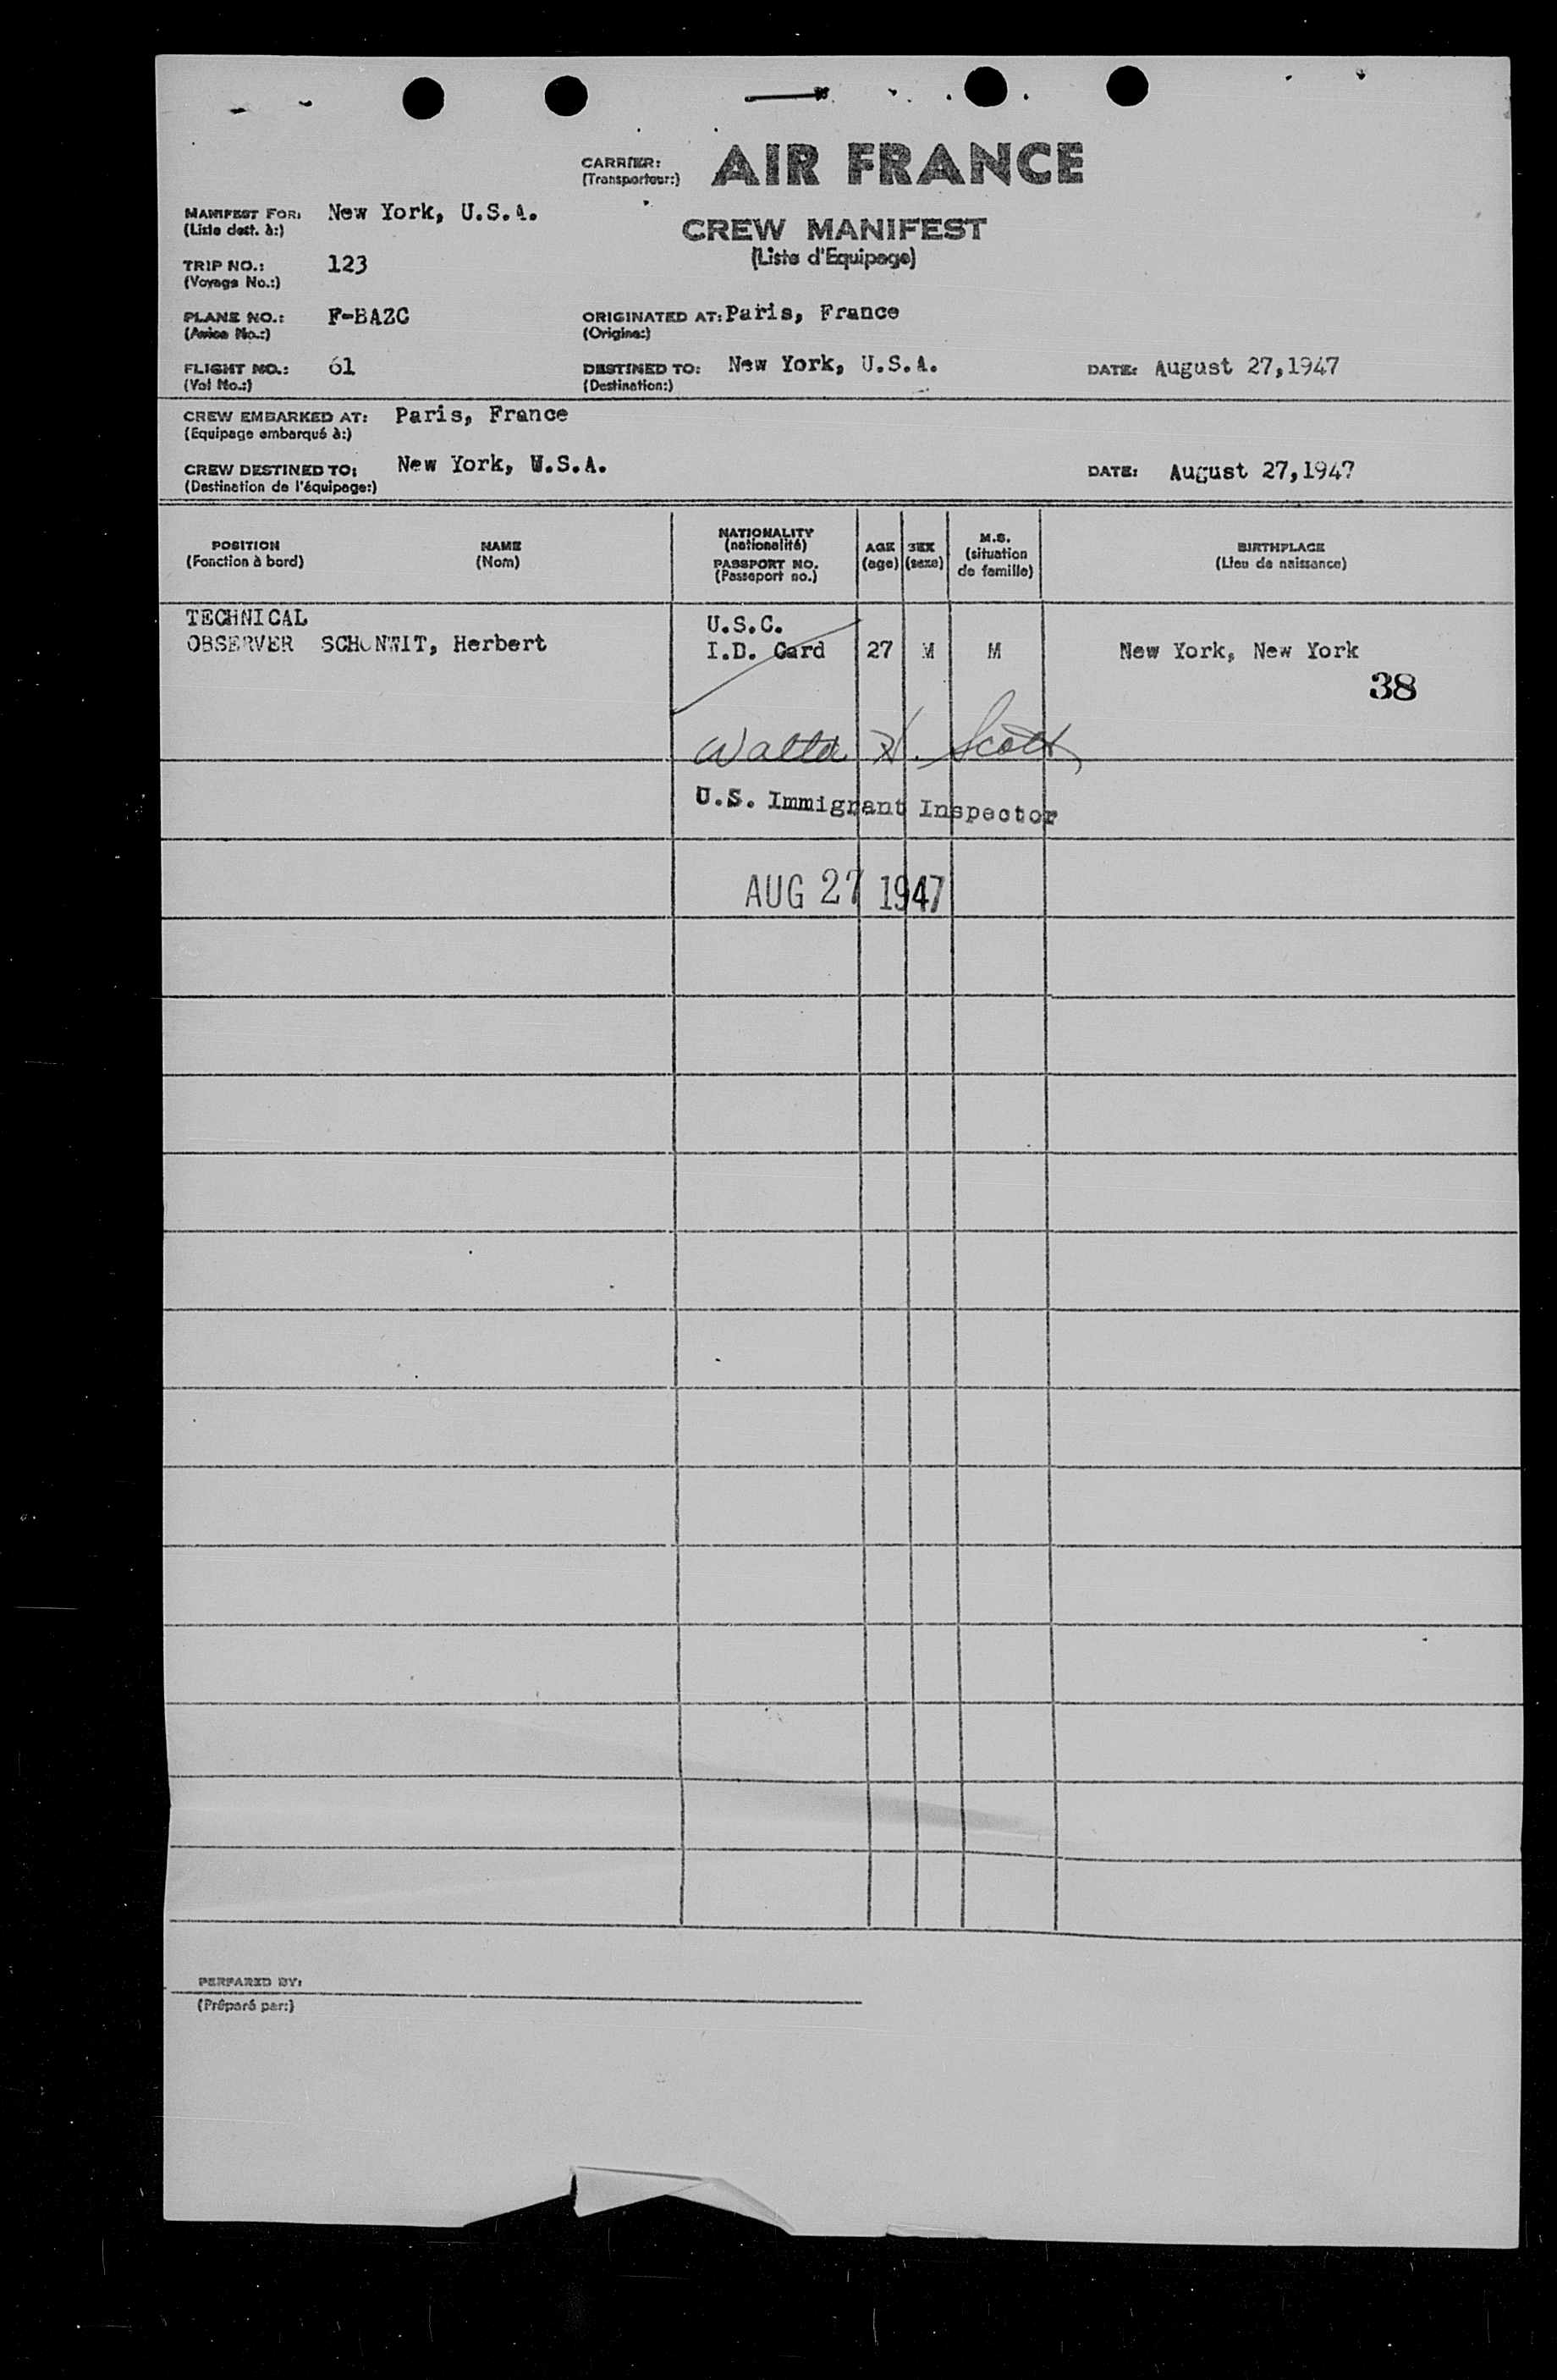 CARRIER: AIR FRANCE
(Transporteur:)
MANIFEST FOR: New York, U.S.A.
(Liste dest. à:)
CREW MANIFEST
(Liste d'Equipage)
TRIP NO.: 123
(Voyage No.:)
PLANE NO.: F-BAZC
(Avion No.:)
ORIGINATED AT: Paris, France
(Origine:)
FLIGHT NO.: 61
(Vol No.:)
DESTINED TO: New York, U.S.A.
(Destination:)
DATE: August 27,1947
CREW EMBARKED AT: Paris, France
(Equipage embarqué à:)
CREW DESTINED TO: New York, U.S.A.
(Destination de l'équipage:)
DATE: August 27,1947
POSITION
(Fonction à bord)
NAME
(Nom)
NATIONALITY
(nationalité)
PASSPORT NO.
(Passeport no.)
AGE
(age)
SEX
(sexe)
M.S.
(situation
de famille)
BIRTHPLACE
(Lieu de naissance)
TECHNICAL U.S.C.
OBSERVER SCHONWIT, Herbert I.D. Card 27 M M New York, New York
38
Walter H. Scott
U.S. Immigrant Inspector
AUG 27 1947
PERPARED BY:
(Préparé par:)